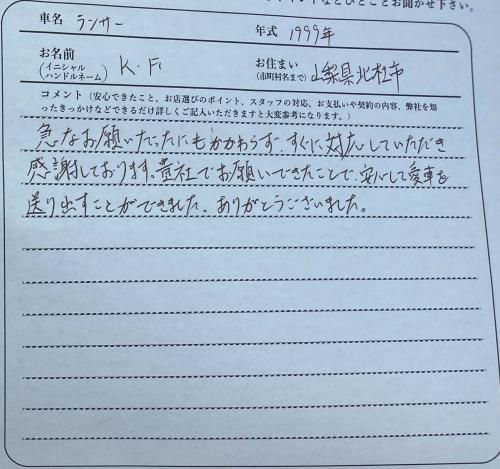 とどおひとことお聞かせ下さい。
車名 ランサー 年式 1999年
お名前 K.F. お住まい 山梨県北杜市
(イニシャル (市町村名まで)
ハンドルネーム)
コメント (安心できたこと、お店選びのポイント、スタッフの対応、お支払いや契約の内容、弊社を知
ったきっかけなどできるだけ詳しくご記入いただきますと大変参考になります。)
急なお願いだったにもかかわらず、すぐに対応していただき
感謝しております。貴社でお願いできたことで、安心して愛車を
送り出すことができました。ありがとうございました。